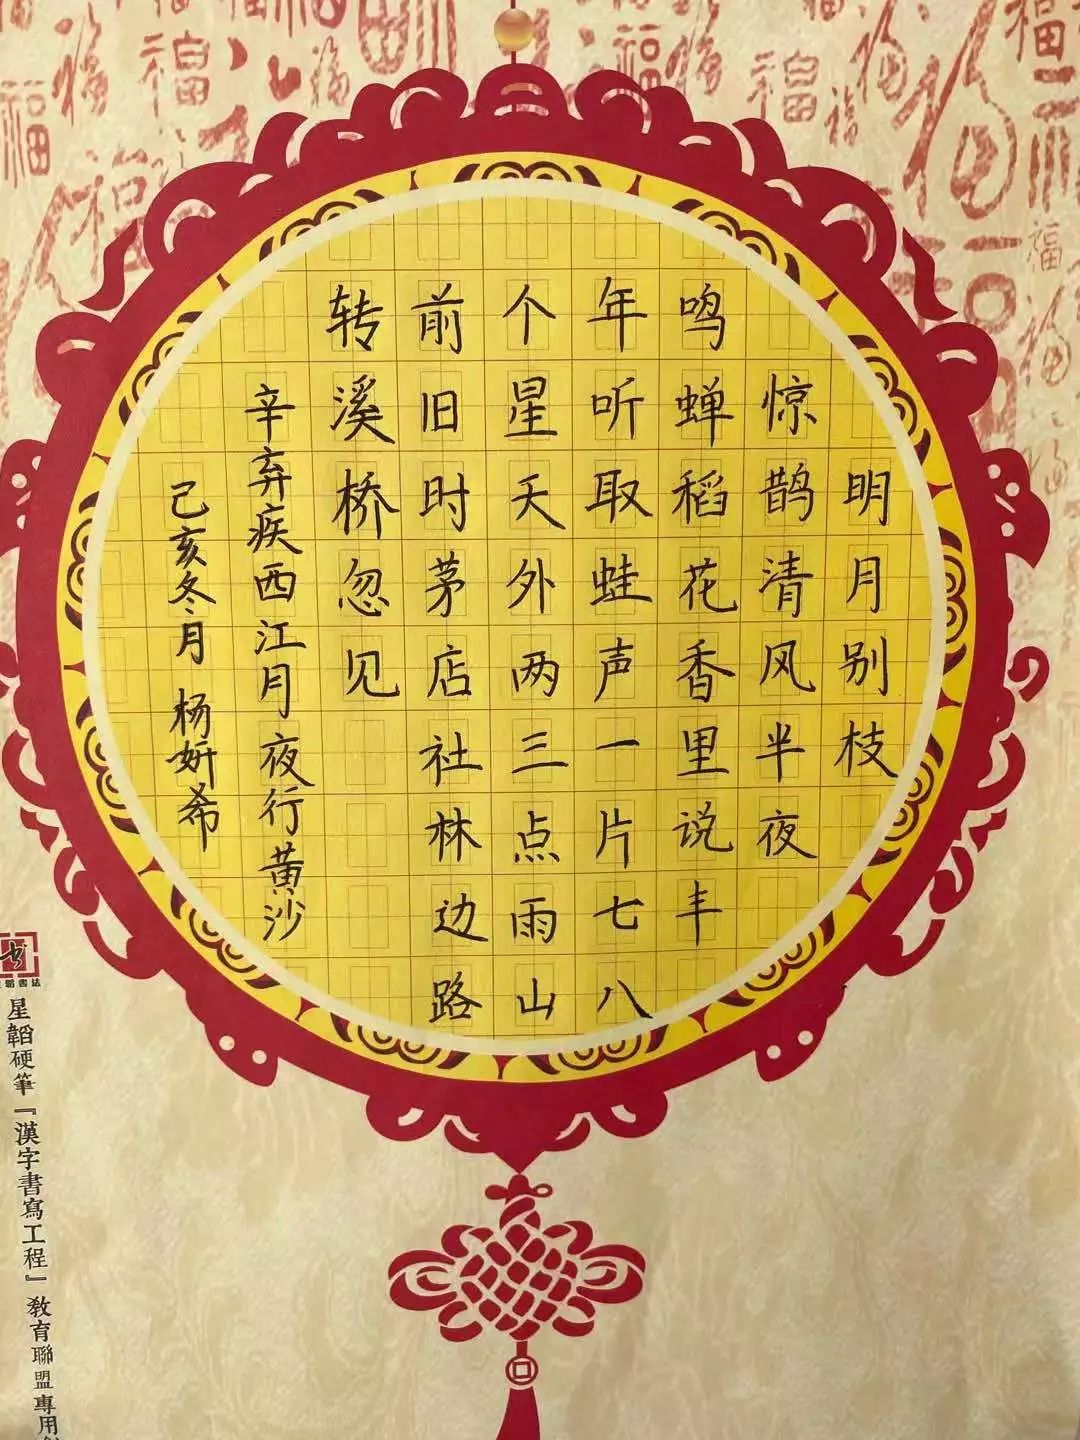 明月别枝
惊鹊清风半夜
鸣蝉稻花香里说丰
年听取蛙声一片七八
个星天外两三点雨山
前旧时茅店社林边路
转溪桥忽见
辛弃疾西江月夜行黄沙
己亥冬月 杨妍希
星韜硬筆『漢字書寫工程』教育聯盟專用